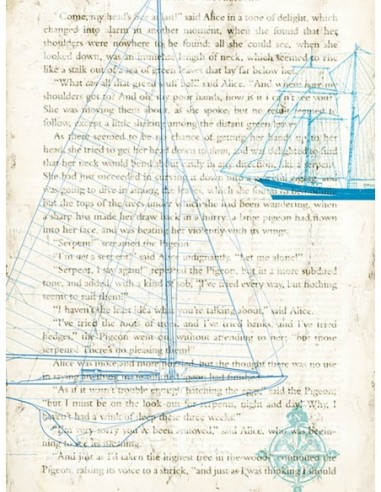 "Come, my head's free at last!" said Alice in a tone of delight, which
changed into alarm in another moment, when she found that her
shoulders were nowhere to be found: all she could see, when she
looked down, was an immense length of neck, which seemed to rise
like a stalk out of a sea of green leaves that lay far below her.
"What can all that green stuff be?" said Alice. "And where have my
shoulders got to? And oh, my poor hands, how is it I can't see you?"
She was moving them about, as she spoke, but no result seemed to
follow, except a little shaking among the distant green leaves.
As there seemed to be no chance of getting her hands up to her
head, she tried to get her head down to them, and was delighted to find
that her neck would bend about easily in any direction, like a serpent.
She had just succeeded in curving it down into a graceful zigzag, and
was going to dive in among the leaves, which she found to be nothing
but the tops of the trees under which she had been wandering, when
a sharp hiss made her draw back in a hurry: a large pigeon had flown
into her face, and was beating her violently with its wings.
"Serpent!" screamed the Pigeon.
"I'm not a serpent!" said Alice indignantly. "Let me alone!"
"Serpent, I say again!" repeated the Pigeon, but in a more subdued
tone, and added, with a kind of sob, "I've tried every way, but nothing
seems to suit them!"
"I haven't the least idea what you're talking about," said Alice.
"I've tried the roots of trees, and I've tried banks, and I've tried
hedges," the Pigeon went on without attending to her; "but those
serpents! There's no pleasing them!"
Alice was more and more puzzled, but she thought there was no use
in saying anything more till the Pigeon had finished.
"As if it wasn't trouble enough hatching the eggs," said the Pigeon;
"but I must be on the look-out for serpents, night and day! Why, I
haven't had a wink of sleep these three weeks!"
"I'm very sorry you've been annoyed," said Alice, who was begin-
ning to see its meaning.
"And just as I'd taken the highest tree in the wood," continued the
Pigeon, raising its voice to a shriek, "and just as I was thinking I should